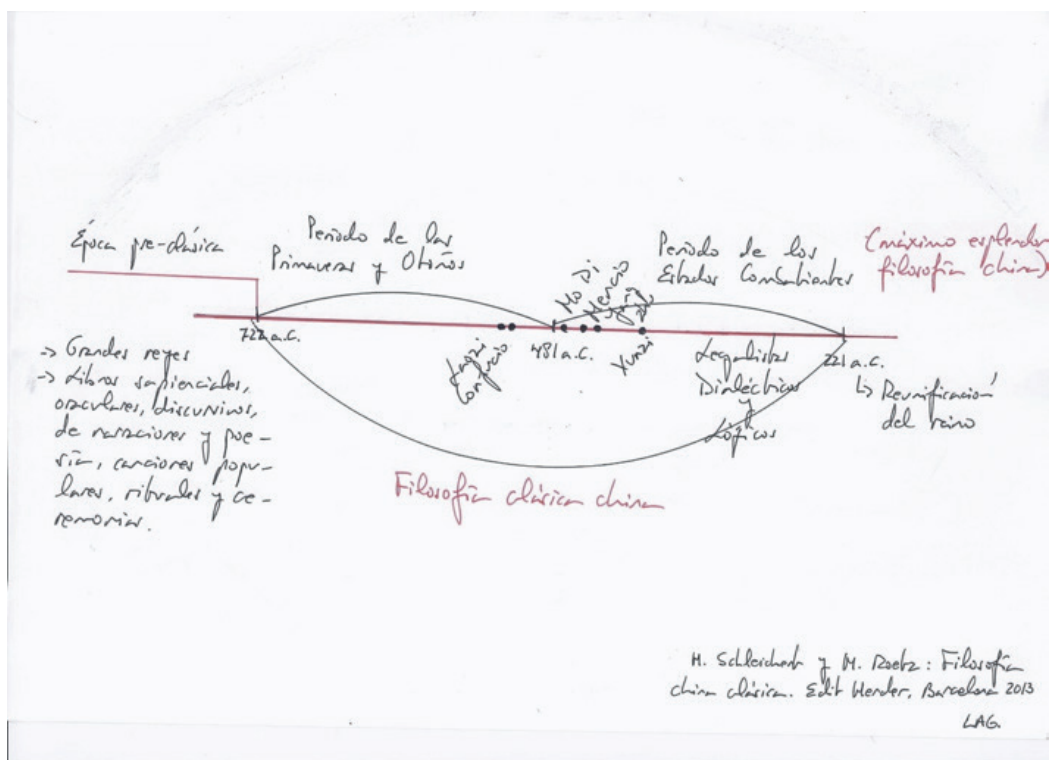 Época pre-clásica
Periodo de las
Primaveras y Otoños
Periodo de los
Estados Combatientes
(máximo esplendor
filosofía china)
722 a.C.
481 a.C.
221 a.C.
Laozi
Confucio
Mo Di
Mencio
Xunzi
Legalistas
Dialécticos
y
Lógicos
-> Grandes reyes
-> Libros sapienciales,
oraculares, discursivos,
de narraciones y poe-
sía, canciones popu-
lares, rituales y ce-
remonias.
↳ Reunificación
del reino
Filosofía clásica china
H. Schleichert y H. Roetz: Filosofía
china clásica. Edit Herder, Barcelona 2013
LAG.